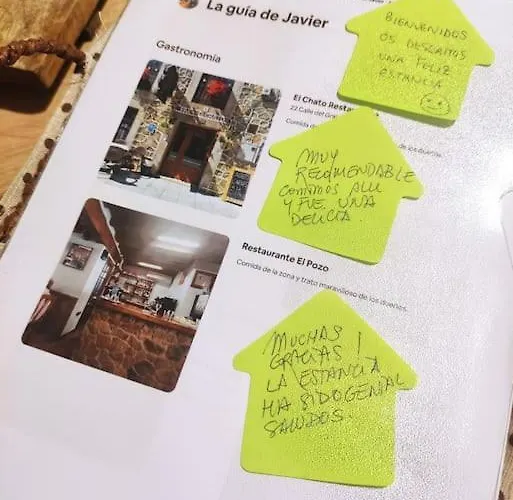 La guía de Javier
Gastronomía
BIENVENIDOS
OS DESEAMOS
UNA FELIZ
ESTANCIA
El Chato Resta
22 Calle del Gra
Comida d
de los dueños.
MUY
RECOMENDABLE
COMIMOS ALLI
Y FUE UNA
DELICIA.
Restaurante El Pozo
Comida de la zona y trato maravilloso de los dueños.
MUCHAS
GRACIAS!
LA ESTANCIA
HA SIDO GENIAL
SALUDOS.